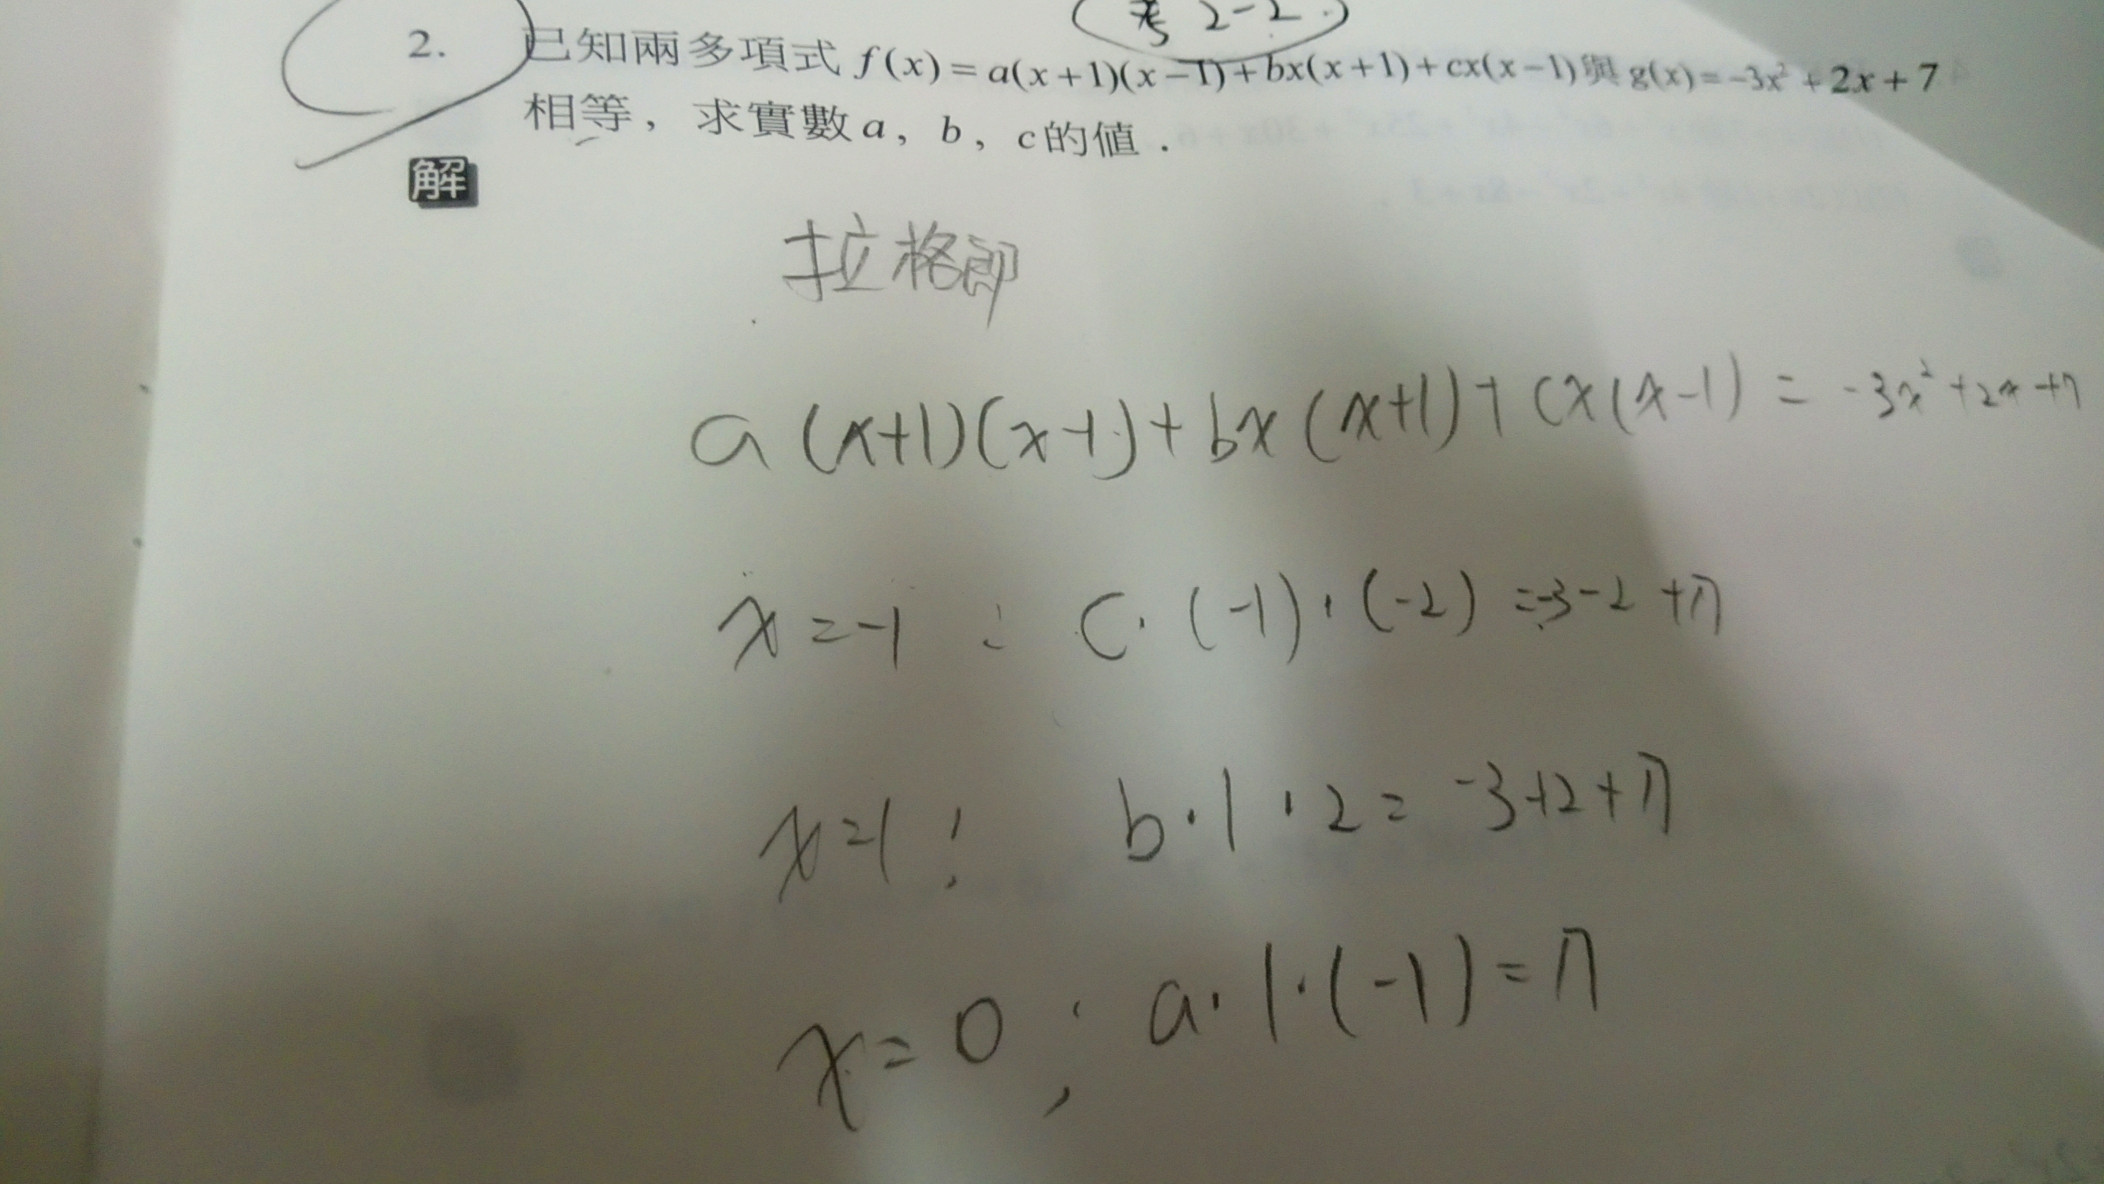 考 2-2
2. 已知兩多項式 f(x)=a(x+1)(x-1)+bx(x+1)+cx(x-1)與 g(x)=-3x²+2x+7
相等，求實數a，b，c的值．
解
拉格郎
a(x+1)(x-1)+bx(x+1)+cx(x-1)=-3x²+2x+7
x=-1 : c·(-1)·(-2)=-3-2+7
x=1 : b·1·2=-3+2+7
x=0 : a·1·(-1)=7